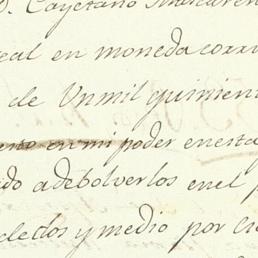 D. Cayetano
eal en moneda corri
de Un mil quinient
en mi poder en esta
do a debolverlos en el p
de dos y medio por cie